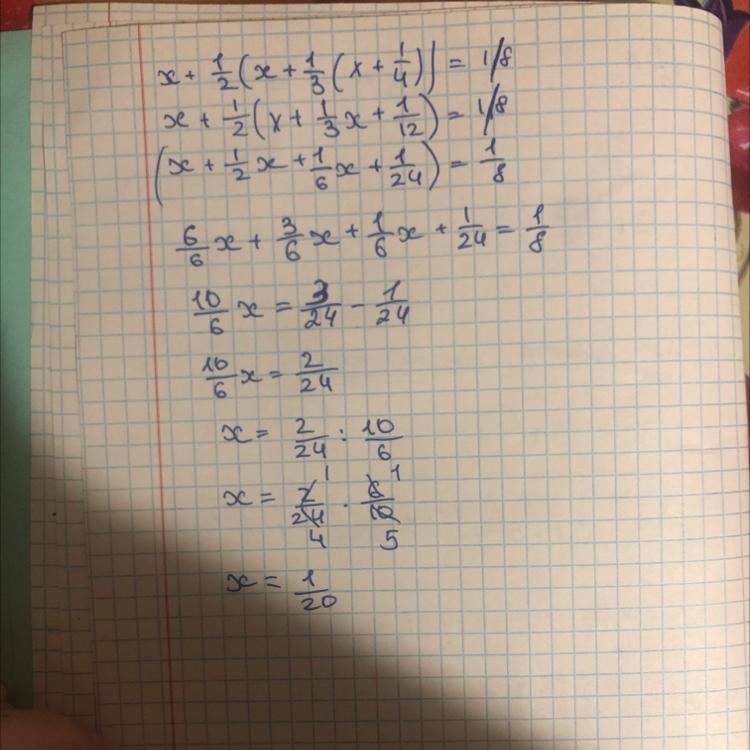 x + 1/2 (x + 1/3 (x + 1/4)) = 1/8
x + 1/2 (x + 1/3 x + 1/12) = 1/8
(x + 1/2 x + 1/6 x + 1/24) = 1/8
6/6 x + 3/6 x + 1/6 x + 1/24 = 1/8
10/6 x = 3/24 - 1/24
10/6 x = 2/24
x = 2/24 : 10/6
x = 2/24 · 6/10 1 1 4 5
x = 1/20